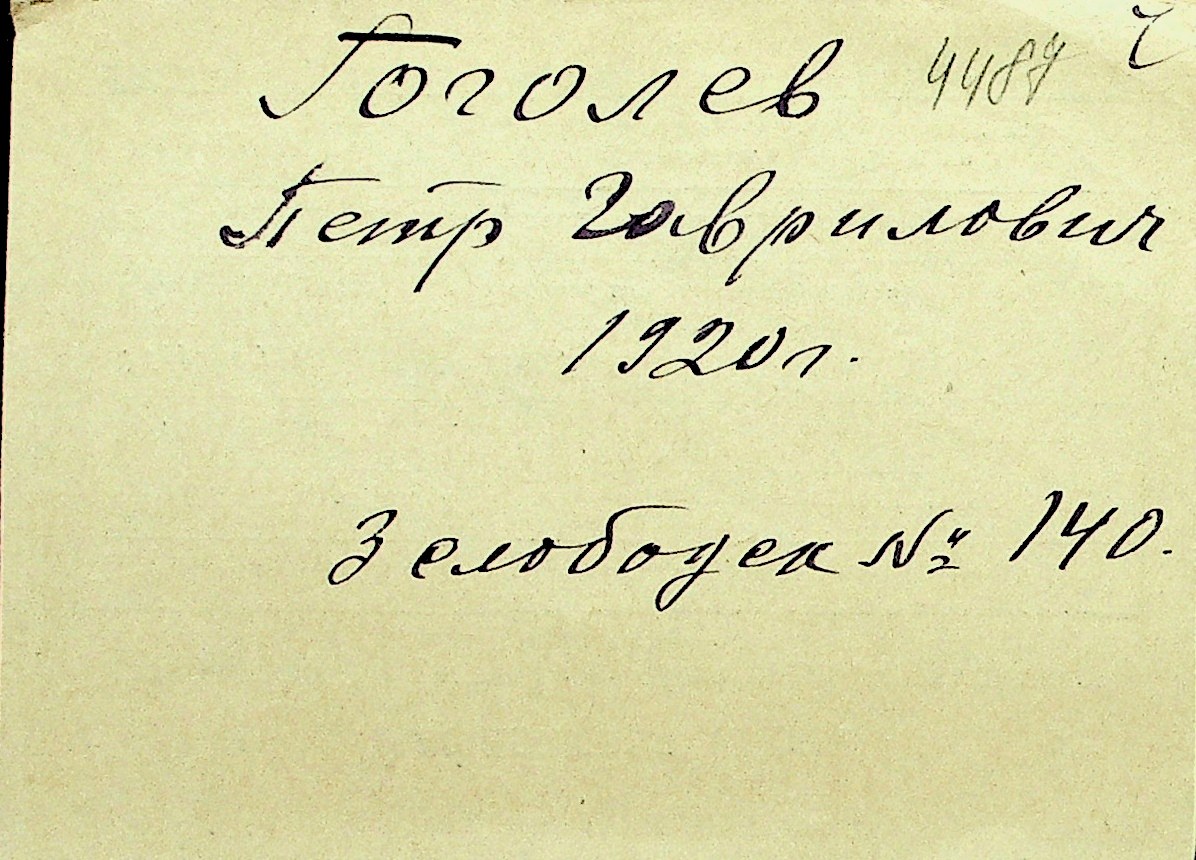 Гоголев 4487
Петр Гаврилович
1920г.
Зелободек № 140.